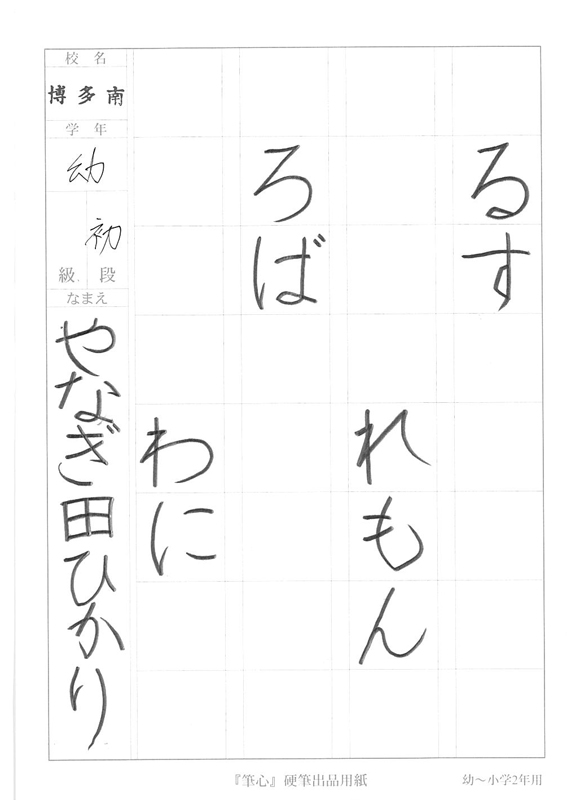 るす
れもん
ろば
わに
校名
博多南
学年
幼
初
級.段
なまえ
やなぎ田ひかり
『筆心』硬筆出品用紙
幼〜小学2年用